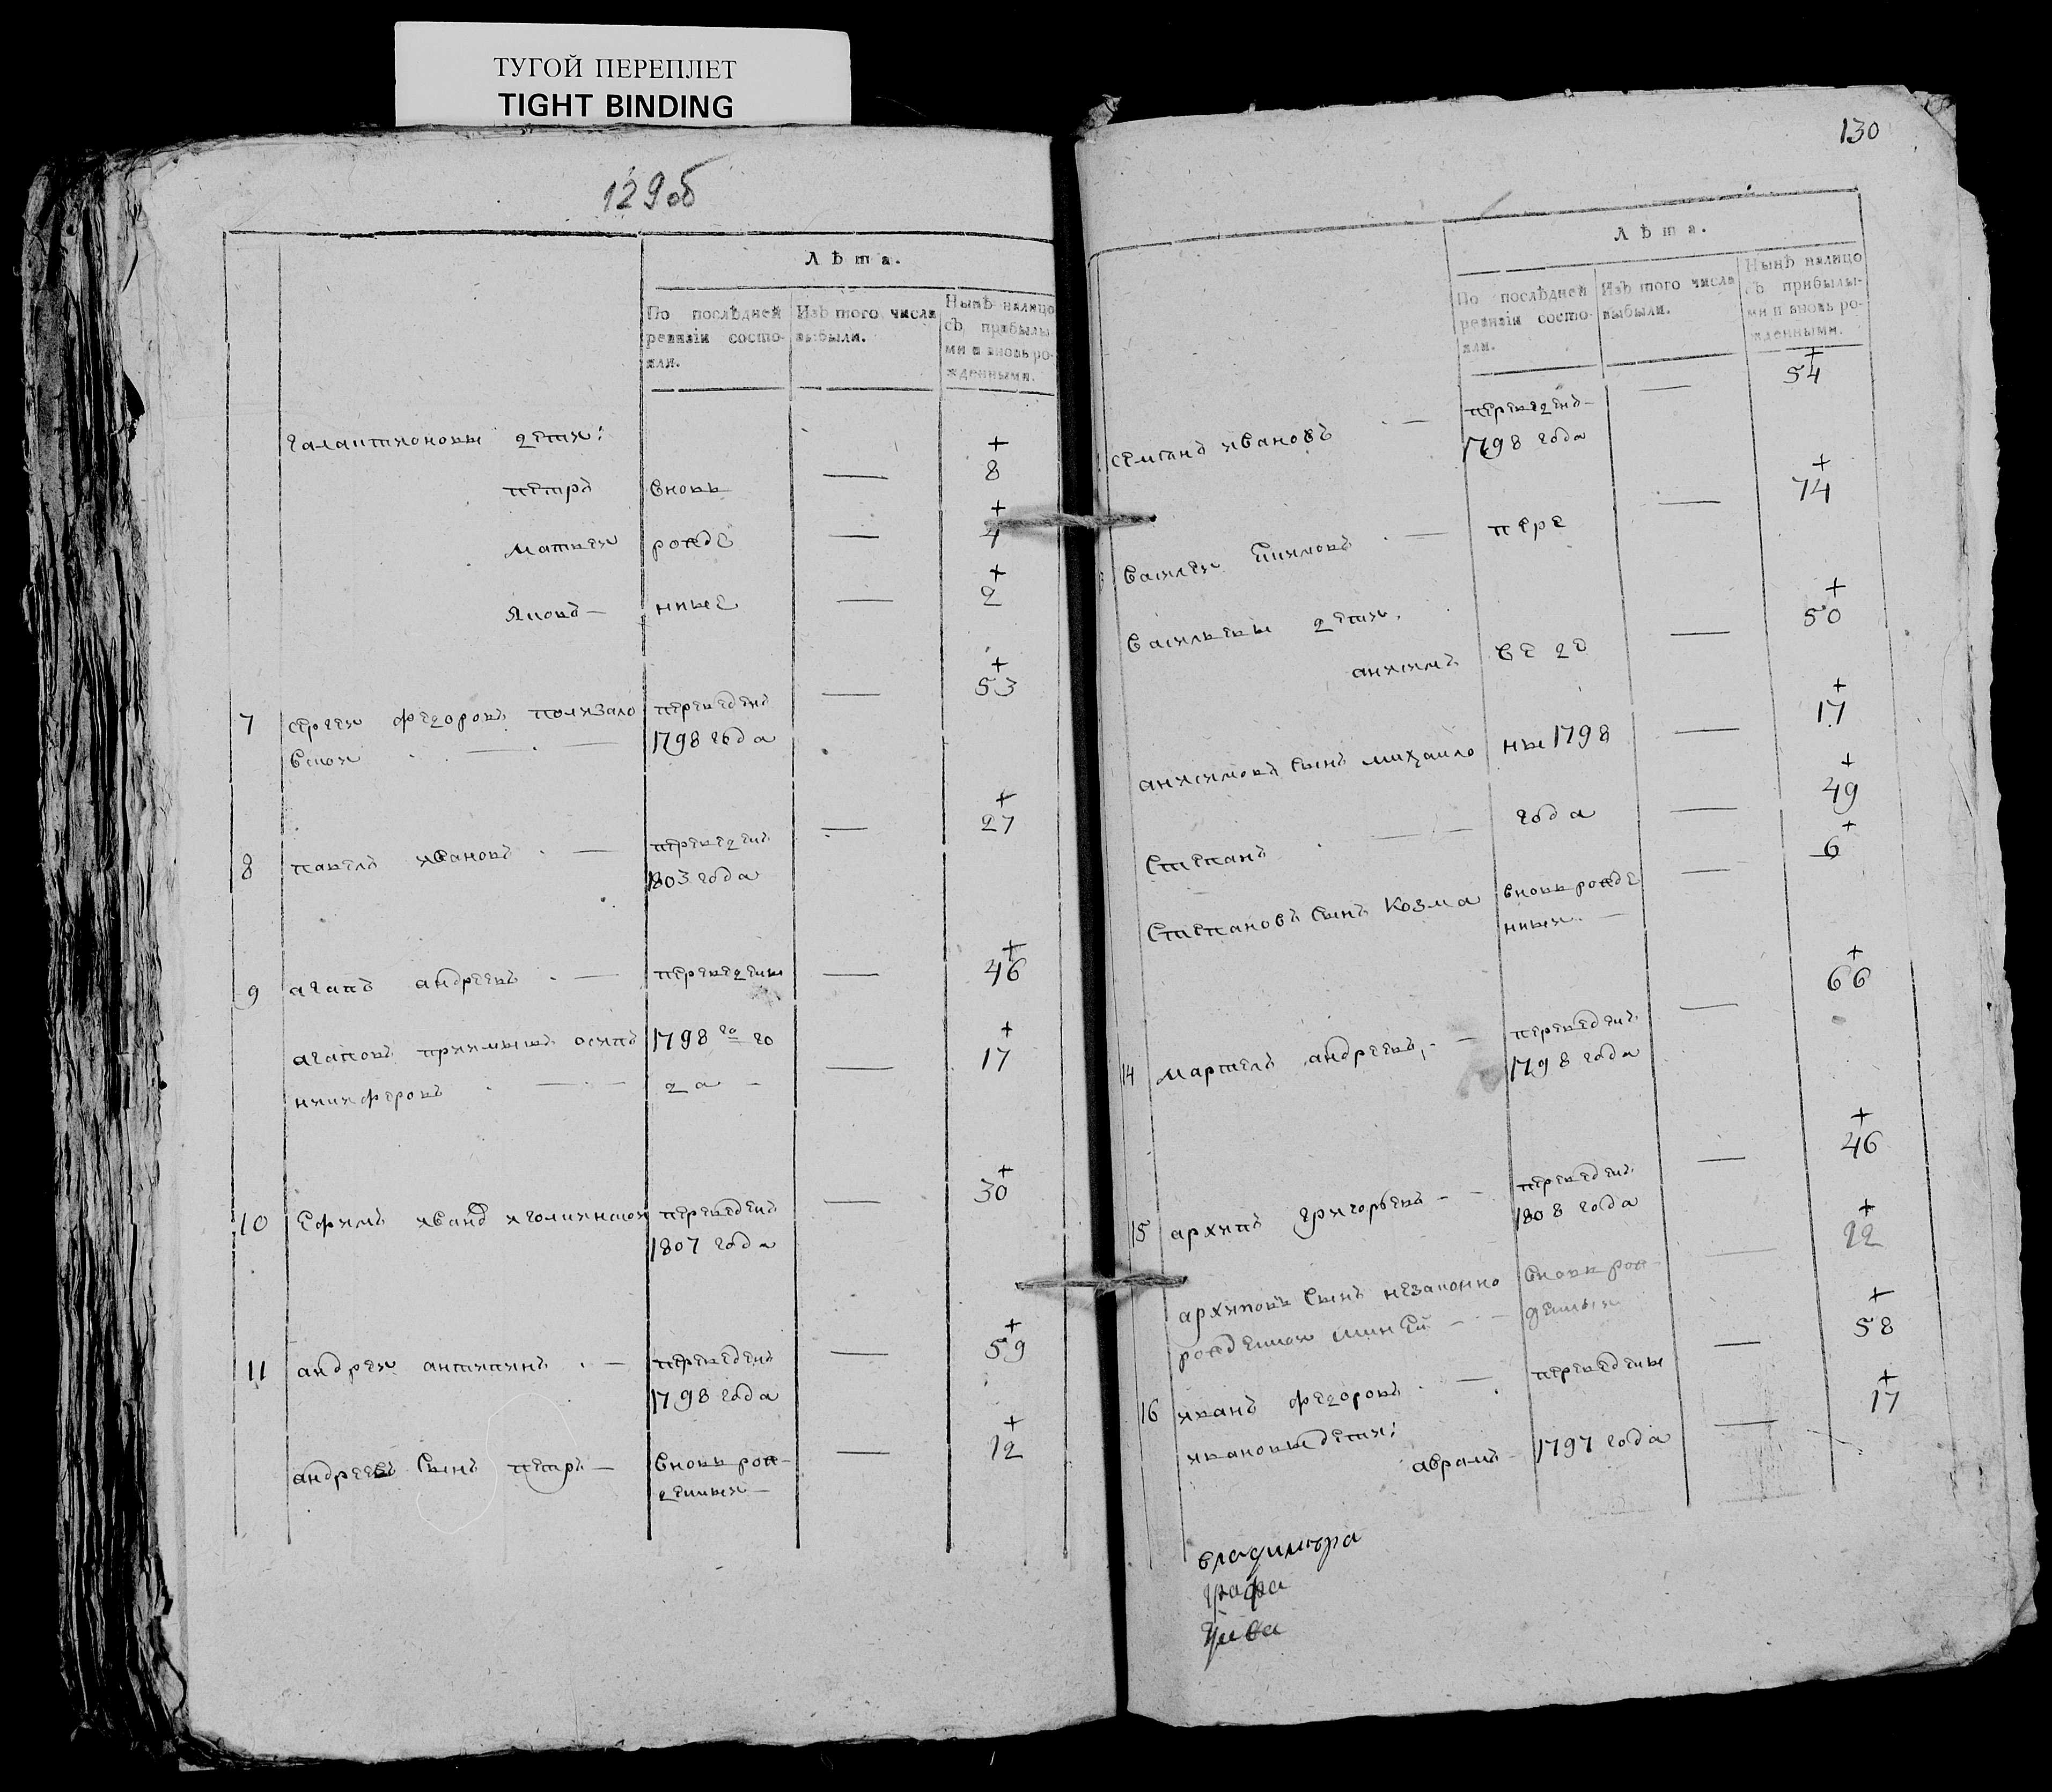 ТУГОЙ ПЕРЕПЛЕТ
TIGHT BINDING
129об
Лѣта.
По послѣдней ревизіи состояли.
Изъ того числа выбыли.
Нынѣ налицо съ прибылыми и вновь рожденными.
Галактионовы дети:
петръ вновь — + 8
матвеи рожде — + 4
Яковъ — нные — + 2
7 сергеи федоровъ переведенъ — + 53
1798 года
8 павелъ ивановъ . — переведенъ — + 27
1803 года
9 агапъ андреевъ . — переведены — + 46
агаповъ приимышъ осипъ 1798 го го — + 17
никифоровъ . — . — да —
10 Ефимъ переведенъ — + 30
1807 года
11 андреи антипинъ . — переведенъ — + 59
1798 года
андреевъ сынъ петръ — вновь рож- — + 12
денныи —
130
Лѣта.
По послѣдней ревизіи состояли.
Изъ того числа выбыли.
Нынѣ налицо съ прибылыми и вновь рожденными.
семенъ ивановъ . — переведенъ — — + 54
1798 года
Василеи . — пере — + 74
Васильевы дети.
анисимъ ве де — + 50
анисимовъ сынъ михаило ны 1798 — + 17
Степанъ . — — года — + 49
Степановъ сынъ Козма вновь рожде — + 6
нныи. —
14 андреевъ, — — переведенъ — + 66
1798 года
15 архипъ григорьевъ — — переведенъ — + 46
1808 года
архиповъ сынъ незаконно вновь рож- — + 12
денныи
16 иванъ федоровъ . — . переведены — + 58
ивановы дети:
аврамъ — 1797 года — + 17
владимира
графа